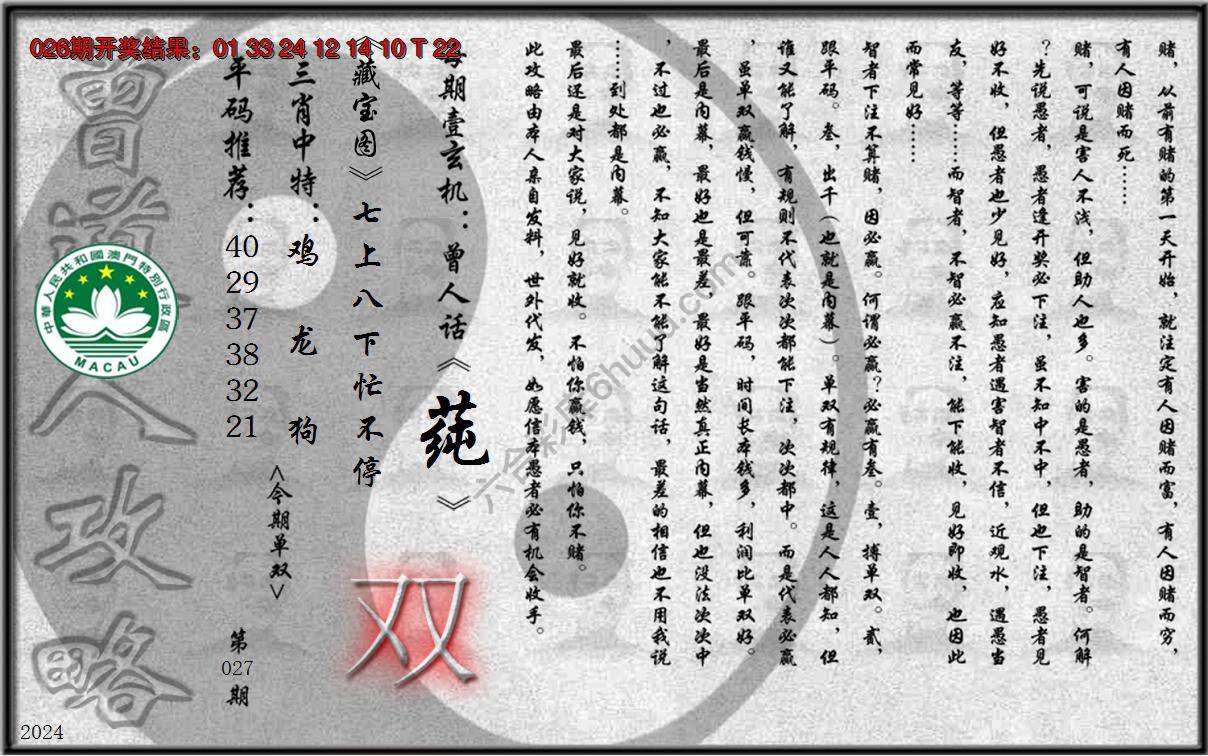 026期开奖结果：01 33 24 12 14 10 T 22
赌，从前有赌的第一天开始，就注定有人因赌而富，有人因赌而穷，
有人因赌而死……
赌，可说是害人不浅，但助人也多。害的是愚者，助的是智者。何解
？先说愚者，愚者逢开奖必下注，虽不知中不中，但也下注，愚者见
好不收，但愚者也少见好，应知愚者遇害智者不信，近观水，遇愚当
友，等等……而智者，不智必赢不注，能下能收，见好即收，也因此
而常见好……
智者下注不算赌，因必赢。何谓必赢？必赢有叁。壹，搏单双。贰，
跟平码。叁，出千（也就是内幕）。单双有规律，这是人人都知，但
谁又能了解，有规则不代表次次都能下注，次次都中。而是代表必赢
，虽单双赢钱慢，但可靠。跟平码，时间长本钱多，利润比单双好。
最后是内幕，最好也是最差，最好是当然真正内幕，但也没法次次中
，不过也必赢，不知大家能不能了解这句话，最差的相信也不用我说
……到处都是内幕。
最后还是对大家说，见好就收。不怕你赢钱，只怕你不赌。
此攻略由本人亲自发料，世外代发，如愿信本愚者必有机会收手。
每期壹玄机：曾人话《莼》
《藏宝图》七上八下忙不停
双
三肖中特：鸡 龙 狗
<今期单双>
平码推荐：
40
29
37
38
32
21
第
027
期
曾道人攻略
中華人民共和國澳門特別行政區
MACAU
2024